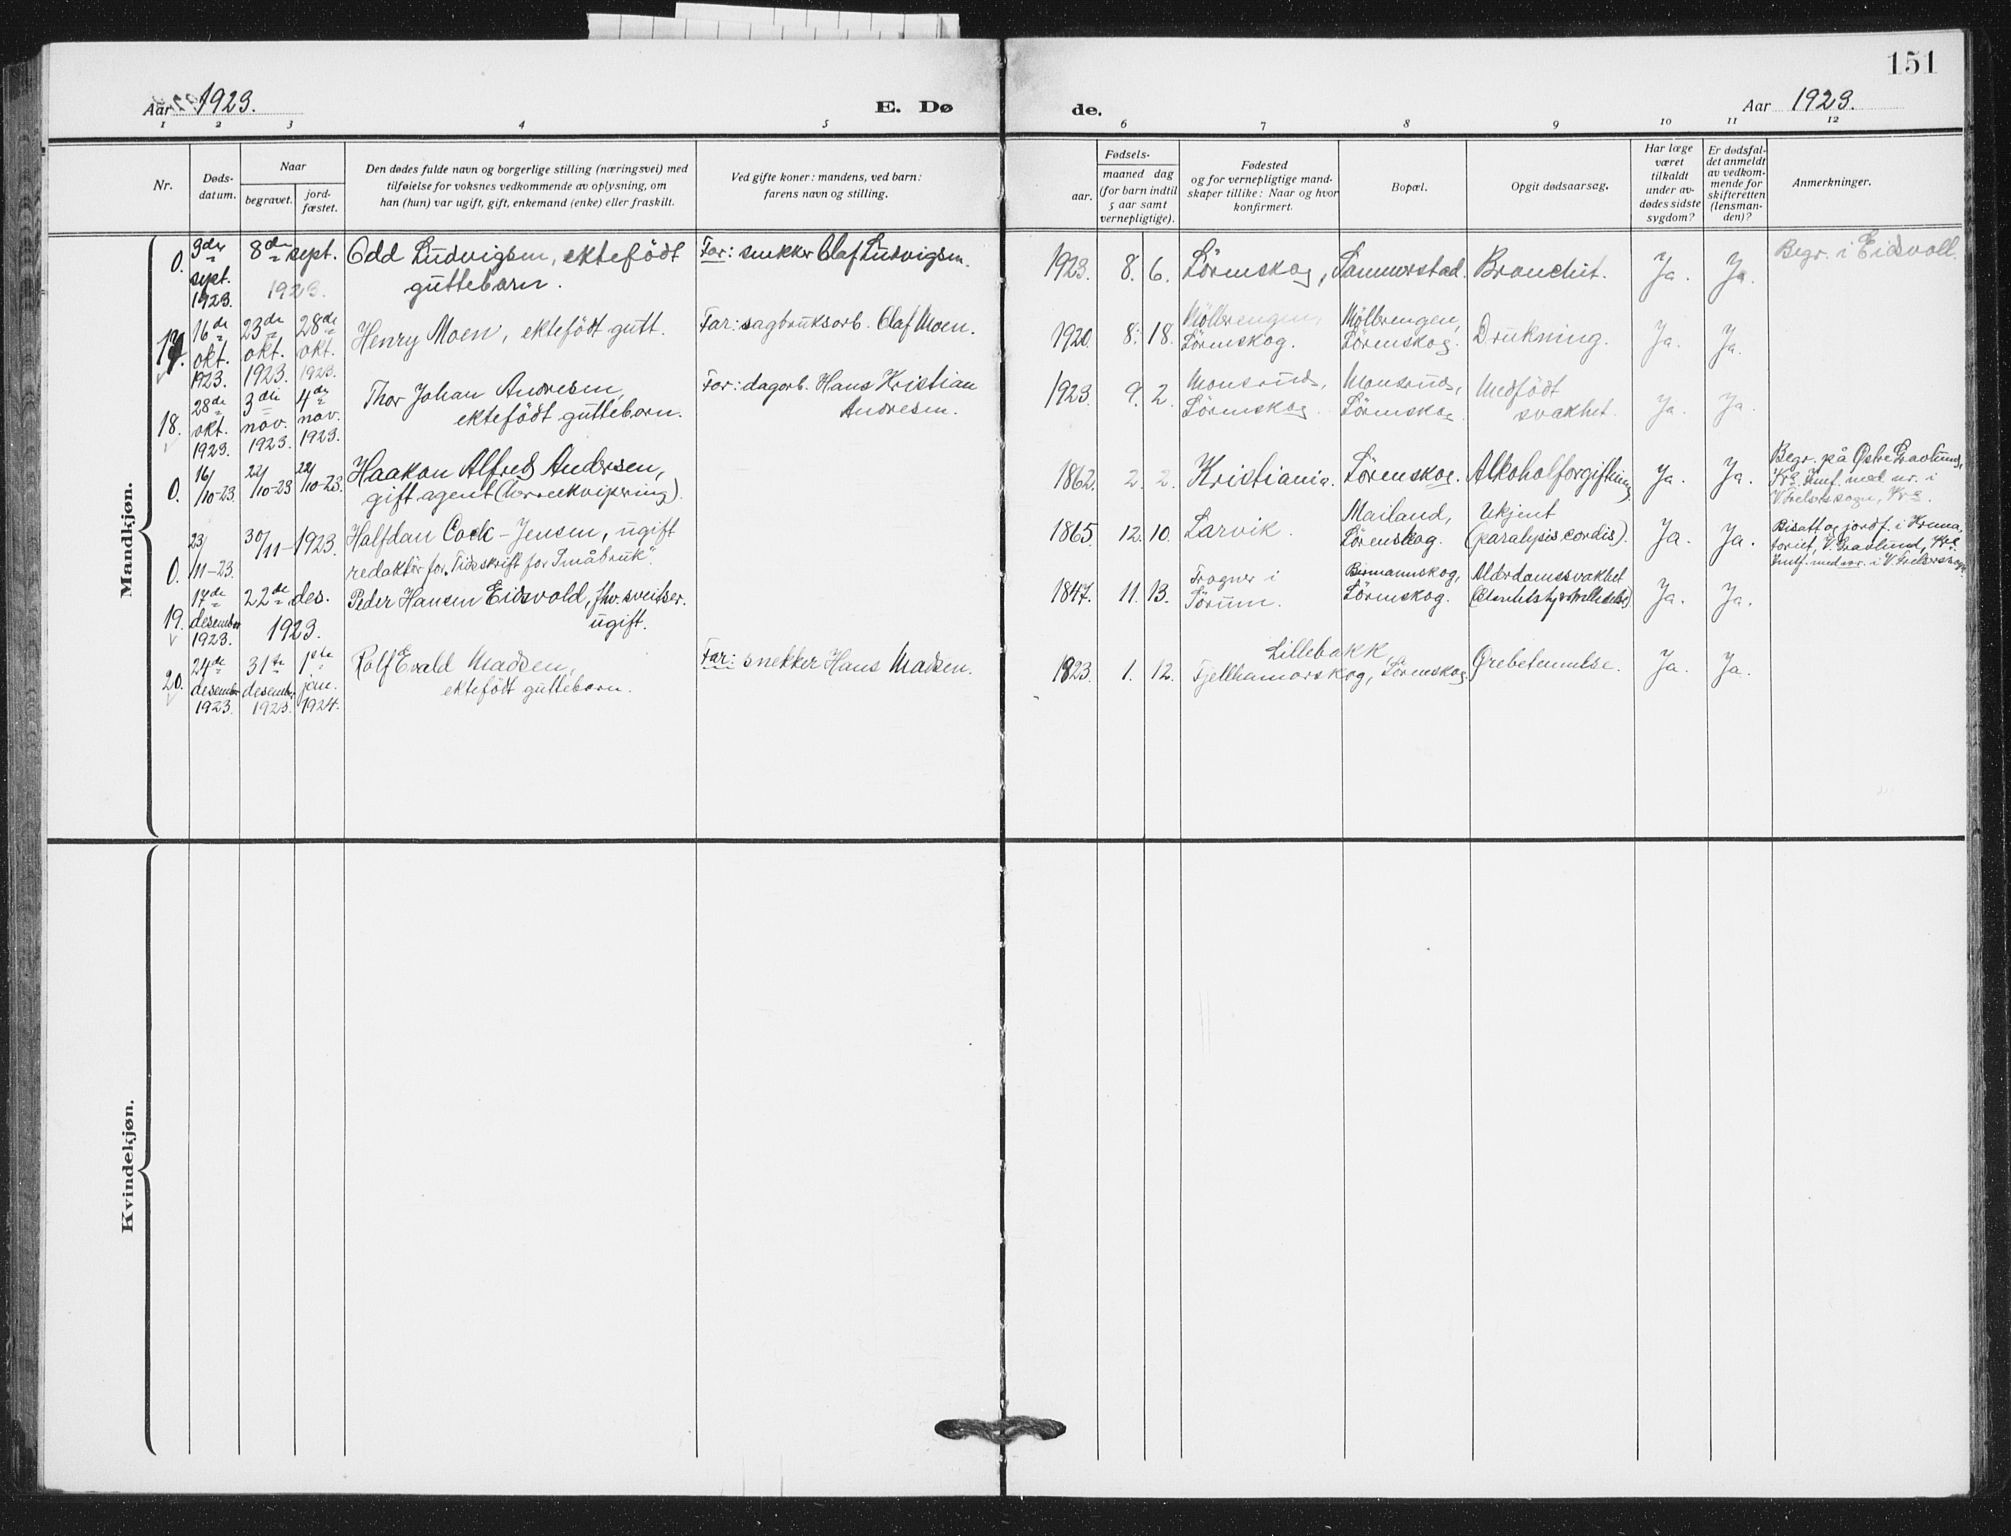 151
Aar 1923. E. Dø de. Aar 1923.
1 2 3 4 5 6 7 8 9 10 11 12
Nr.
Døds-
datum.
Naar
begravet.
jord-
fæstet.
Den dødes fulde navn og borgerlige stilling (næringsvei) med
tilføielse for voksnes vedkommende av oplysning, om
han (hun) var ugift, gift, enkemand (enke) eller fraskilt.
Ved gifte koner: mandens, ved barn:
farens navn og stilling.
Fødsels-
aar.
maaned dag
(for barn indtil
5 aar samt
vernepligtige).
Fødested
og for vernepligtige mand-
skaper tillike: Naar og hvor
konfirmert.
Bopæl.
Opgit dødsaarsag.
Har læge
været
tilkaldt
under av-
dødes sidste
sygdom?
Er dødsfal-
det anmeldt
av vedkom-
mende for
skifteretten
(lensman-
den)?
Anmerkninger.
Mandkjøn.
0.
3die
sept.
1923.
8de sept.
1923.
Odd Ludvigsen, ektefödt
guttebarn.
Far: snekker Olaf Ludvigsen.
1923. 8. 6. Lörenskog, Sannerstad. Bronchit. Ja. Ja.
Begr. i Eidsvoll.
17.
16de
okt.
1923.
23de
okt.
1923.
28de
okt.
1923.
Henry Moen, ektefödt gutt.
Far: sagbruksarb. Olaf Moen.
1920. 8. 18.
Möllerengen,
Lörenskog.
Möllerengen,
Lörenskog.
Drukning. Ja. Ja.
18.
28de
okt.
1923.
3die
nov.
1923.
4de
nov.
1923.
Thor Johan Andresen,
ektefödt guttebarn.
Far: dagarb. Hans Kristian
Andresen.
1923. 9. 2.
Monsruds,
Lörenskog.
Monsruds,
Lörenskog
Medfödt
svakhet. Ja. Ja.
0.
16/
10-23.
22/
10-23
22/
10-23.
Haakon Alfred Andersen,
gift agent (herreekvipering).
1862. 2. 2. Kristiania. Lörenskog. Alkoholforgiftning Ja. Ja.
Begr. på Østre Gravlund,
Kra. Innf. med nr. i
V. Frelsers sogn, Kra.
0.
23/
11-23.
30/11-1923.
Halfdan Cock-Jensen, ugift
redaktör for „Tidsskrift for Småbruk".
1865. 12. 10. Larvik.
Mailand,
Lörenskog.
Ukjent
(paralysis cordis). Ja. Ja.
Bisatt og jordf. i Krema-
toriet, V. Gravlund, Kra.
Innf. med nr. i V. Frelsers sogn.
19.
17de
desember
1923.
22de des.
1923.
Peder Hansen Eidsvold, fhv. sveitser.
ugift.
1847. 11. 13.
Frogner i
Sörum.
Bermannskog,
Lörenskog.
Alderdomssvakhet
Ja. Ja.
20.
24de
desember
1923.
31te
desemb.
1923.
1ste
jan.
1924.
Rolf Evald Madsen,
ektefödt guttebarn.
Far: snekker Hans Madsen.
1923. 1. 12.
Lillebakk,
Fjellhamarskog, Lörenskog.
Ørebetennelse. Ja. Ja.
Kvindekjøn.